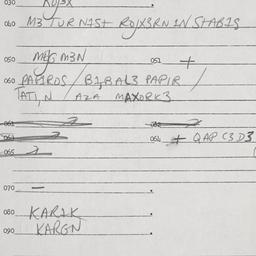 030
040 M3 TURN1ST ROJX3RN 1N STAB1S
050 M3G M3N 051 +
060 PAP1ROS / B1,BAL3 PAP1R /
TAT1,N / AZA MAXORK3
061 062
063 064 + QAP C3D3
065
070 —
080 KAR1K
090 KARGN